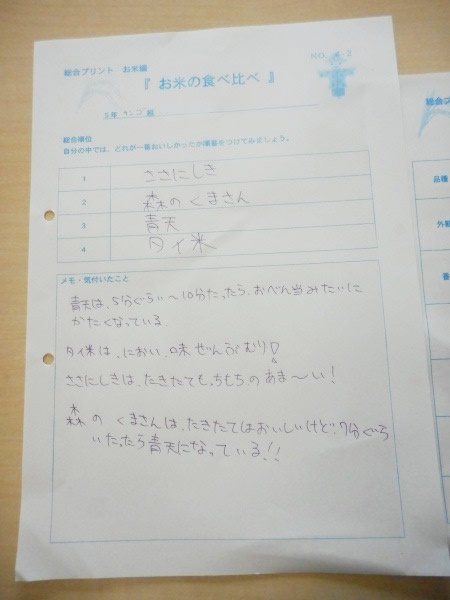 総合プリント　お米編
NO. 4-2
『 お米の食べ比べ 』
5年 組
総合順位
自分の中では、どれが一番おいしかったか順番をつけてみましょう。
1 ささにしき
2 森のくまさん
3 青天
4 タイ米
メモ・気付いたこと
青天は、5分ぐらい〜10分たったら、おべん当みたいに
かたくなっている
タイ米は、におい、味ぜんぶむり!
ささにしきは、たきたても、もちもちのあま〜い!
森の くまさんは、たきたてはおいしいけど、7分ぐらい
たったら青天になっている!!
総合プ
品種
外観